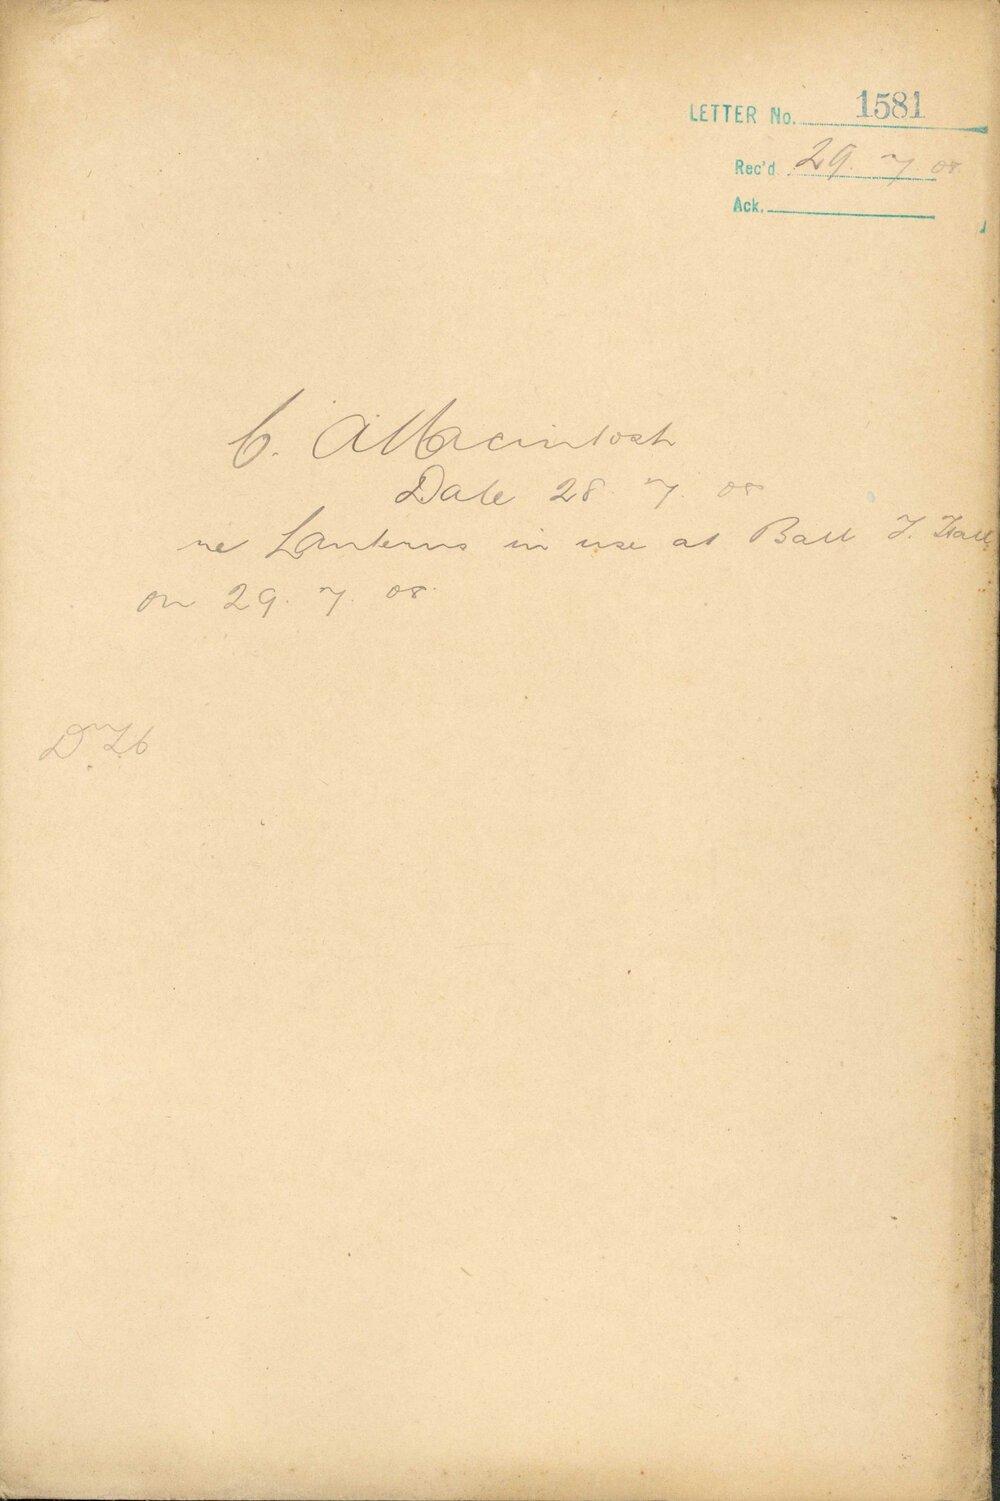 LETTER No. 1581
Rec'd 29. 7. 08
Ack.
C. A Macintosh
Date 28. 7. 08
re Lanterns in use at Ball T. Hall
on 29. 7. 08.